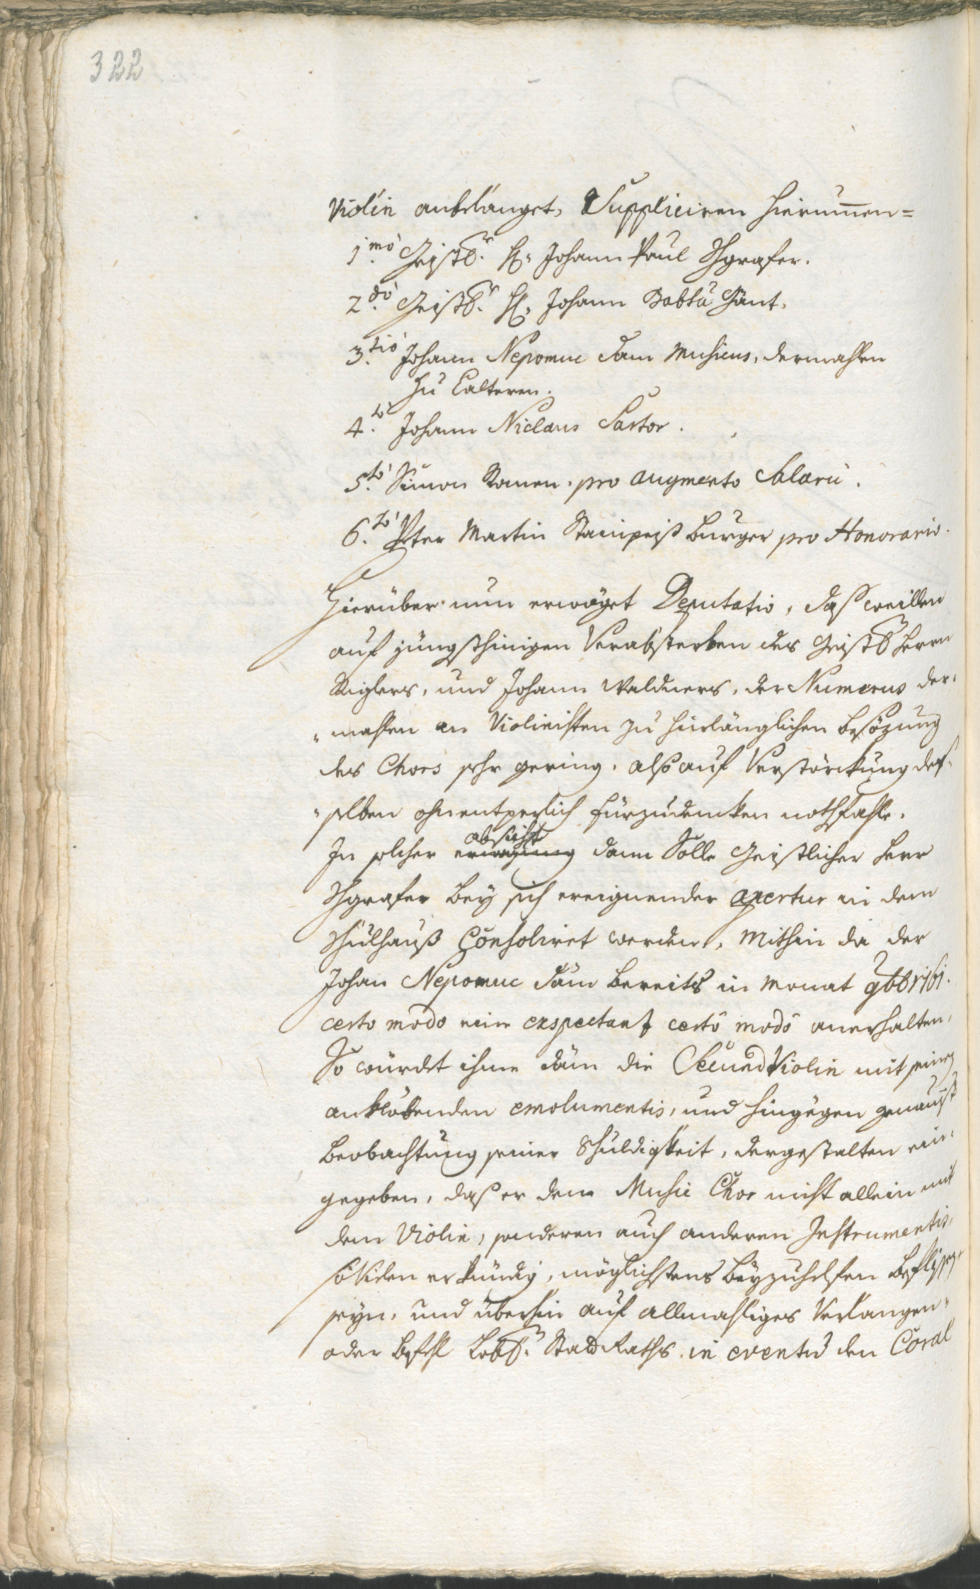 322
Violin anbelanget, Suppliciren hierummen=
1.mo Geistl.r H: Johann Paul Schgrafer.
2.do Geistl.r H: Johann Babta Gänt.
3.tio Johann Nepomuc Däm Musicus, dermahlen
zu Calteren.
4.to Johann Niclaus Sartor.
5.to Simon Romen. pro augmento Salarii.
6.to Peter Martin burger pro Honorario.
Hierüber nun erwöget Deputatio, daß weillen
auf jüngsthinigen Verabsterben des Geistl.n Herrn
Riglers, und Johann Waldners, der Numerus der„
„mahlen an Violinisten zu hinlänglichen besözung
des Chors sehr gering, also auf Verstörckung des„
„selben ohnentperlich fürzudencken nothfahle.
In solcher absicht dann Solle Geistlicher Herr
Schgrafer bey sich ereignender apertur in dem
Schulhauß Consoliret werden, Mithin da der
Johan Nepomuc Däm bereits in Monat 9bbr 1761.
certo modo eine exspectanz certo modo anerhalten,
So würdet ihme Däm die Secund Violin mit seinen
anklöbenden emolumentis, und hingegen genauist
beobachtung seiner Schuldigkeit, dergestalten ein„
gegeben, daß er dem Music Chor nicht allein mit
dem Violin, sonderen auch anderen Instrumentis,
so Viden er kündig, möglichstens beyzuhelfen beflissen
seyn, und überhin auf allmahliges Verlangen„
oder befehl Lobl.n Stadt Raths in eventu den Coral